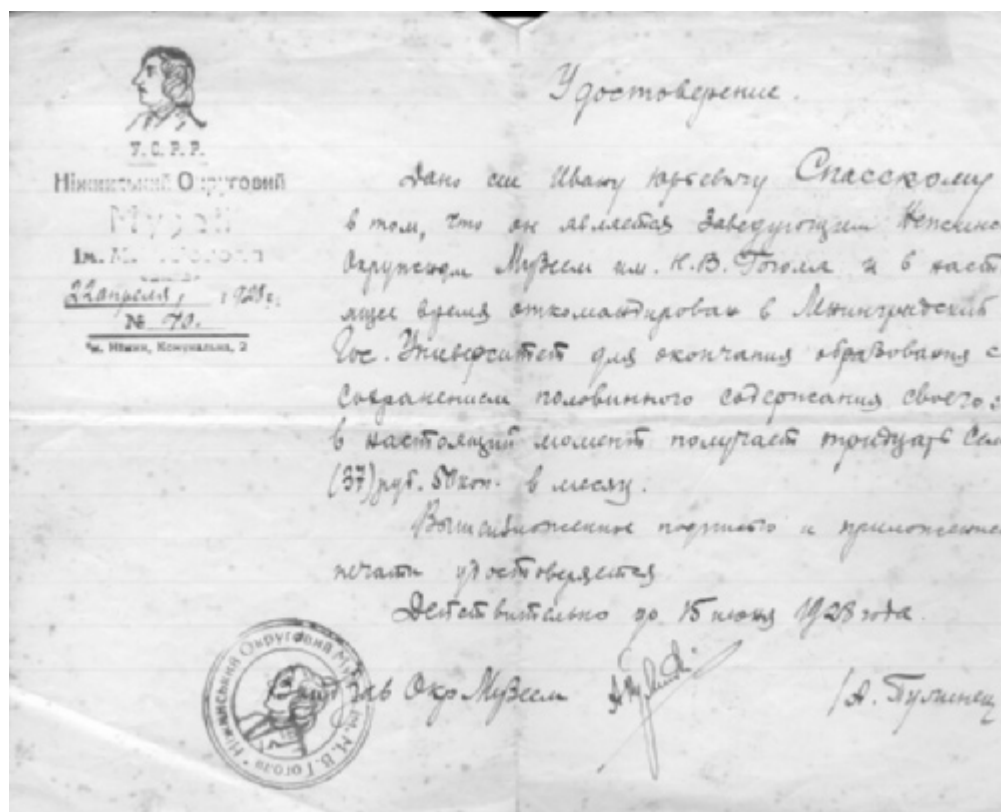 У.С.Р.Р.
Ніжинський Округовий
Музей
Ім. М. В. Гоголя
22 апреля, 1928 г.
№ 70.
м. Ніжин, Комунальна, 2
Удостоверение.
Дано сие Ивану Юрьевичу Спасскому
в том, что он является Заведующим Нежинс
Окружным Музеем им. Н.В. Гоголя и в наст
ящее время откомандирован в Ленинградский
Гос. Университет для окончания образования с
сохранением половинного содержания своего
в настоящий момент получает тридцать сем
(37) руб. 50 коп. в месяц.
Вышеизложенное подписью и приложением
печати удостоверяется
Действительно до 15 июня 1928 года.
Зав Окр Музеем
/А. Пулинец
Ніжинський Округовий Музей ім. М. В. Гоголя